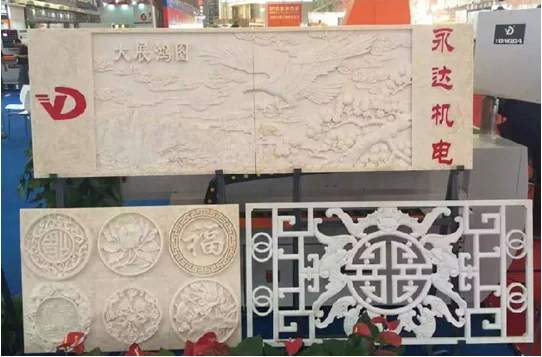 大展鸿图
永达机电
YONGDA
福